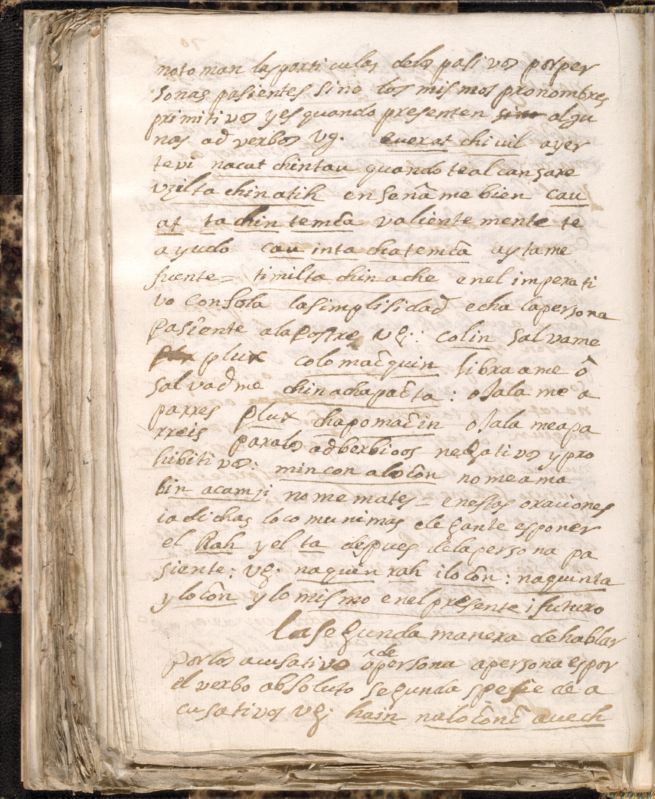 no toman las particulas delos pasivos por per
sonas pasientes sino los mismos pronombres
primitivos y es quando presenten algu
nos adverbos vg. euerat chivil ayer
te vi nacat chintau quando te alcansare
vtzilta chinatih enseñame bien cau
at tachin temcã valientemente te
ayudo cau inta chatemcã aytame
fuente = timilta chinache en el imperati
vo con sola la simplisidad echa la persona
pasiente a la postre vg: colin salvame
plux colomacquin libraame ô
salvadme chinachapacta: ojala me a
parres plux chapomacin ojala meapa
rreis para los adverbioos negativos y pro
hibitivos: mincon alocõn no me ama
bin acamji no me mates = en estas oraciones
ia dichas lo comun i mas elegante es poner
el Rah y el ta despues dela persona pa
siente: vg: naquin rah ilocõn: naquinta
ylocõn y lo mismo en el presente i futuro
La segunda manera de hablar
por los acusativo ô de persona a persona es por
el verbo absoluto segunda spesie de a
cusativos vg: hain nalocõnc auech